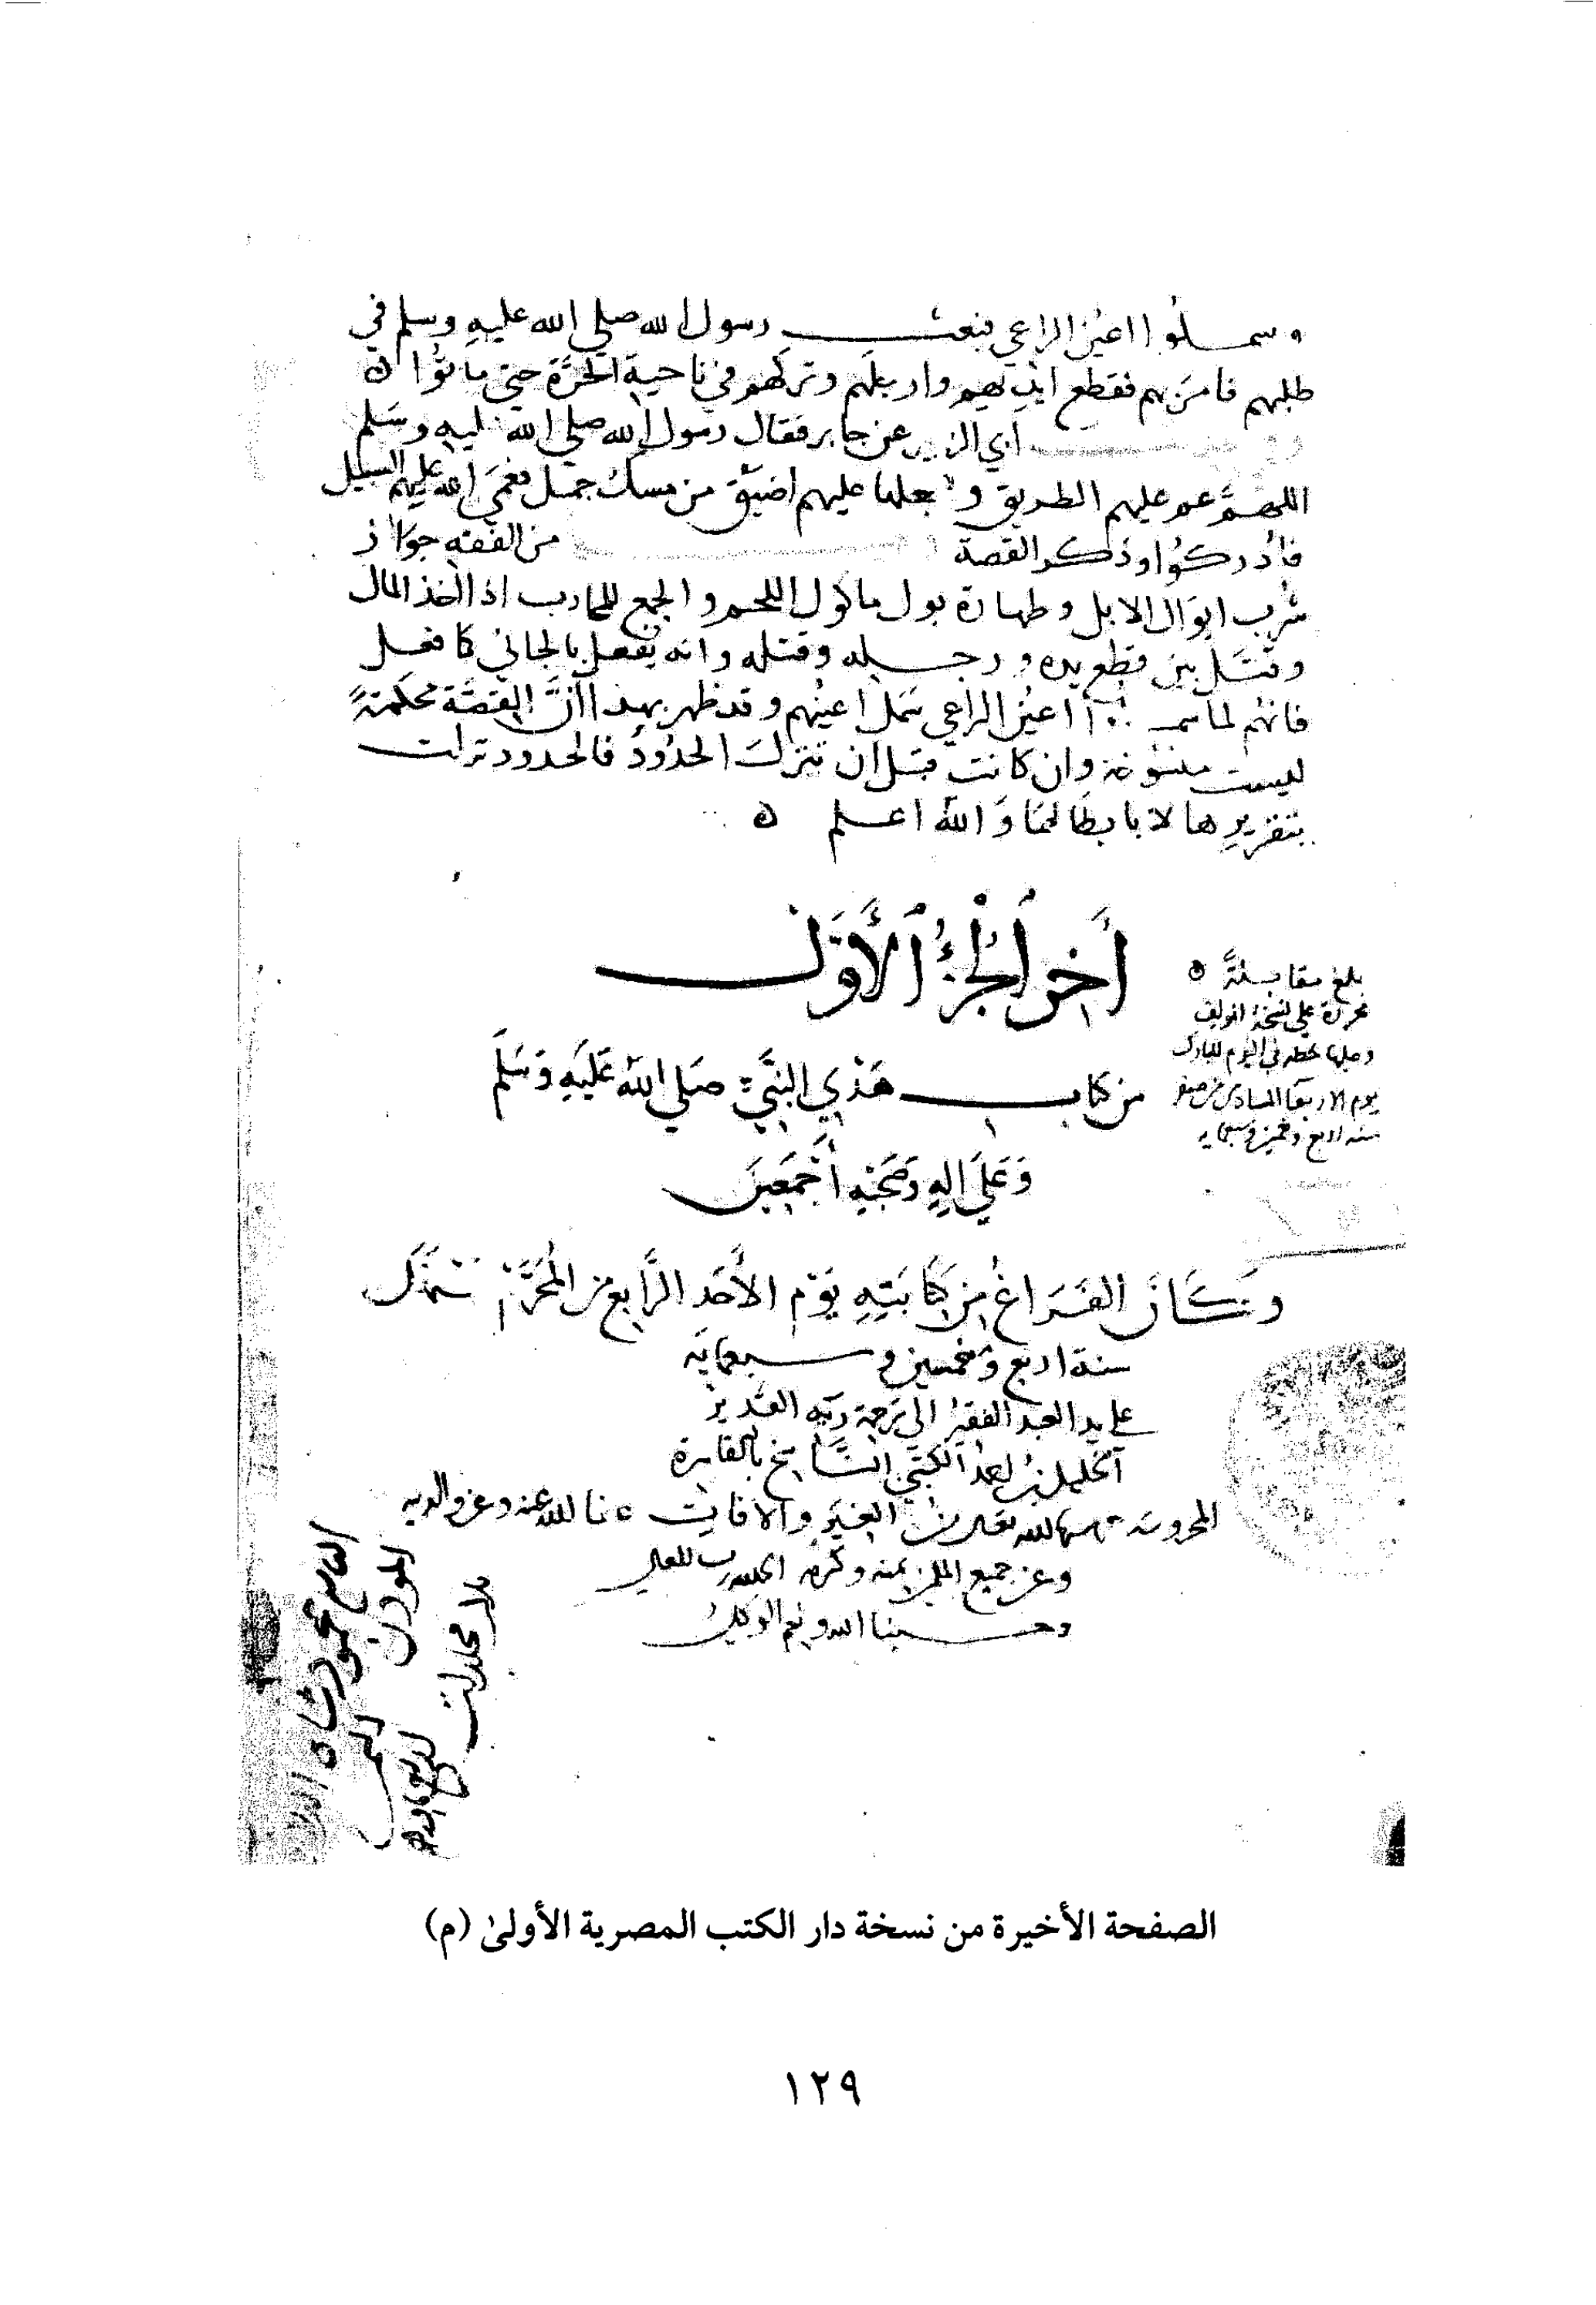 وسملوا اعين الراعي فبعث رسول الله صلي الله عليه وسلم في
طلبهم فامر بهم فقطع ايديهم وارجلهم وتركهم في ناحية الحرة حتي ماتوا
ابي الزبير عن جابر فقال رسول الله صلي الله عليه وسلم
اللهم عم عليهم الطريق واجعلها عليهم اضيق من مسك جمل فعمي الله عليهم السبيل
فأدركوا وذكر القصة من الفقه جواز
شرب ابوال الابل وطهارة بول ماكول اللحم والجمع للمحارب اذا اخذ المال
وقتل بين قطع يده ورجله وقتله وانه يفعل بالجاني كما فعل
فانهم لما سملوا اعين الراعي سمل اعينهم وقد ظهر بهذا ان القصة محكمة
ليست منسوخة وان كانت قبل ان تنزل الحدود فالحدود نزلت
بتقريرها لا بابطالها والله اعلم
آخر الجزء الأول
من كتاب هدي النبي صلي الله عليه وسلم
وعلي اله وصحبه أجمعين
بلغ مقابلة
محررة علي نسخة المولف
وعليها خطه في اليوم المبارك
يوم الاربعا السادس من صفر
سنه اربع وخمسين وسبعمايه
وكان الفراغ من كتابته يوم الأحد الرابع من المحرم
سنة اربع وخمسين وسبعماية
علي يد العبد الفقير الي رحمة ربه القدير
الكتبي الناسخ بالقاهرة
المحروسة الغير والافات عفا الله عنه وعن والديه
وعن جميع المسلمين بمنه وكرمه
وحسبنا الله ونعم الوكيل
الصفحة الأخيرة من نسخة دار الكتب المصرية الأولىٰ (م)
١٢٩